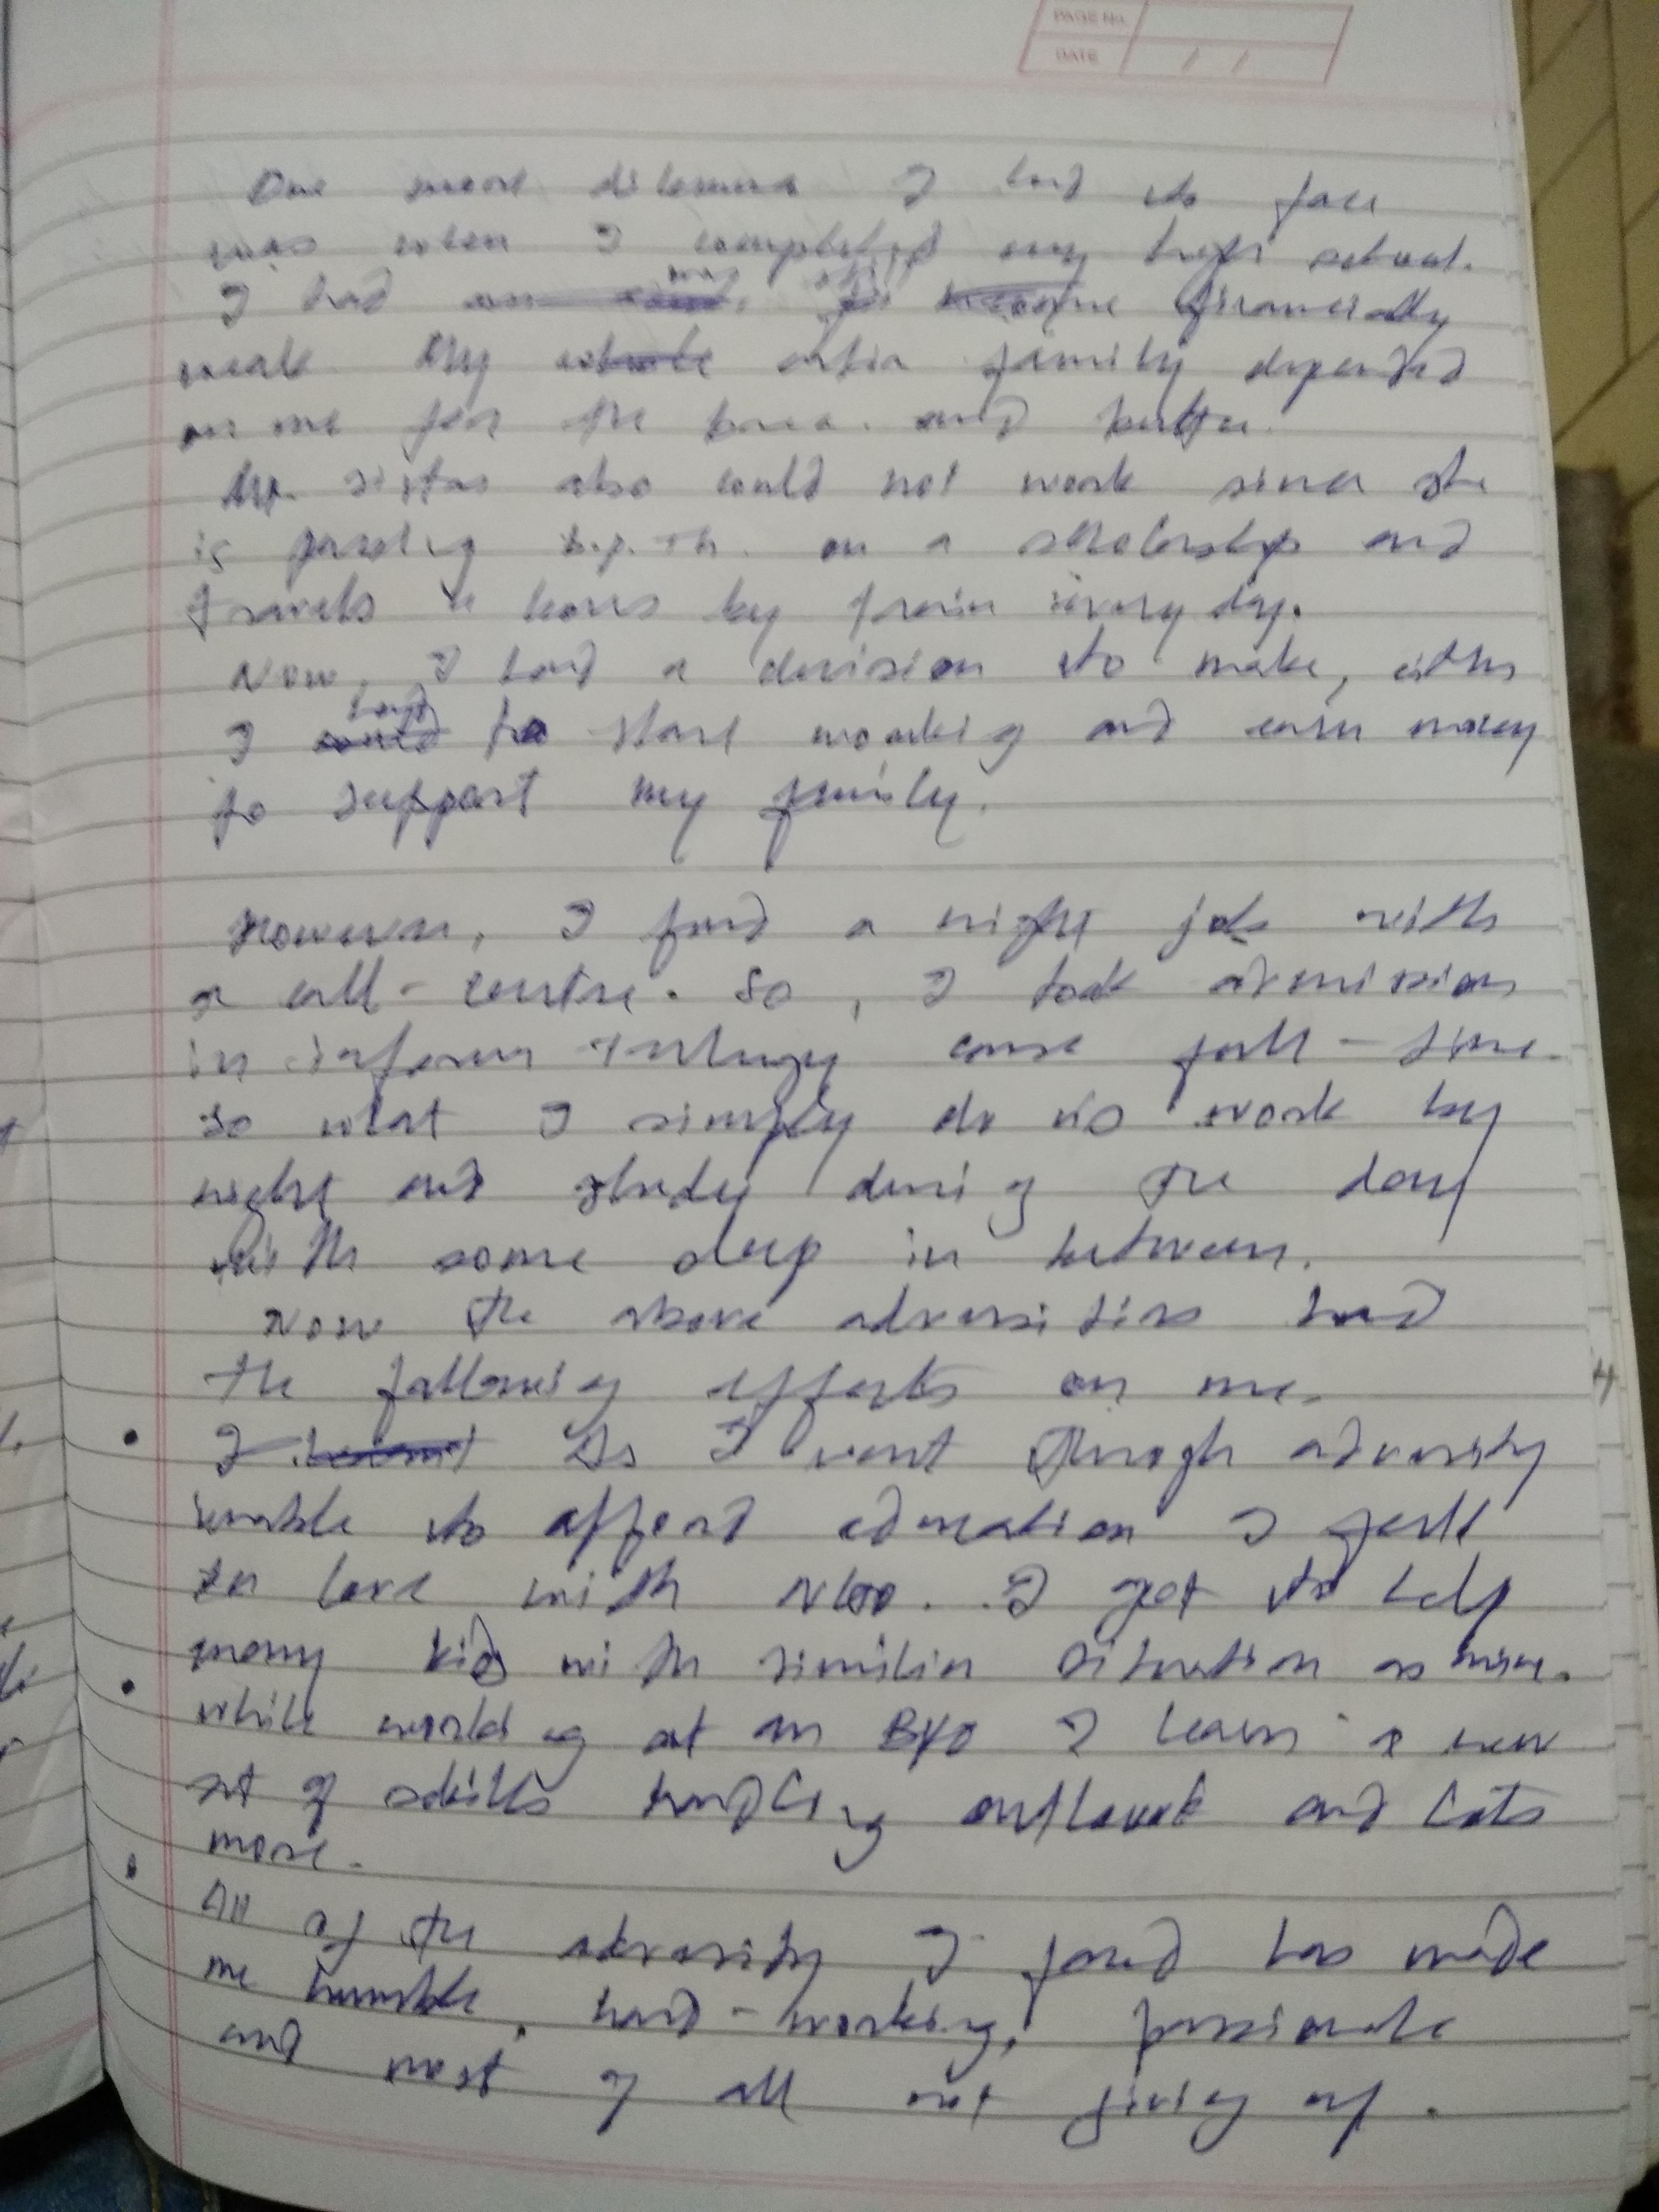 PAGE No.
DATE / /
One more dilemma I had to face
was when I completed my high school.
I had was still financially
weak. My entire family depended
on me for the bread and butter.
My sister also could not work since she
is B.P.Th. on a scholarship and
travels hours by train every day.
Now, I had a decision to make, either
I had to start working and earn money
to support my family.
However, I found a night job with
a call-centre. So, I took admission
in course full-time.
So what I simply do is work by
night and study during the day
with some sleep in between.
Now the above adversities had
the following effects on me.
• I As I went through adversity
unable to afford education I fell
in love with NGO. I get to help
many kids with similar situation as mine.
• while working at an BPO I learn a new
set of skills handling outlook and lots
more.
• All of the adversity I faced has made
me humble, hard-working, passionate
and most of all not giving up.